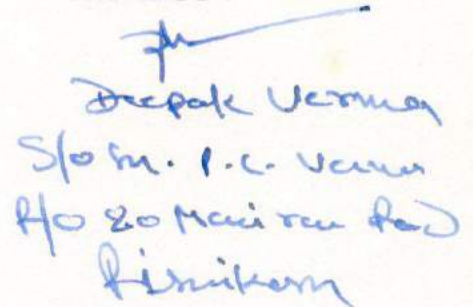 Deepak Verma
S/o Sh. P.C. Verma
R/o 20 Road
Rishikesh